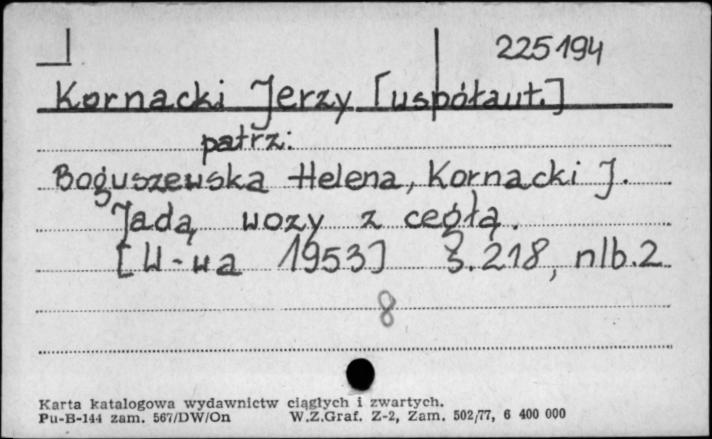 225194
Kornacki Jerzy [współaut.]
patrz:
Boguszewska Helena, Kornacki J.
Jadą wozy z cegłą.
[W-wa 1953] s. 218, nlb. 2
8
Karta katalogowa wydawnictw ciągłych i zwartych.
Pu-B-144 zam. 567/DW/On W.Z.Graf. Z-2, Zam. 502/77, 6 400 000